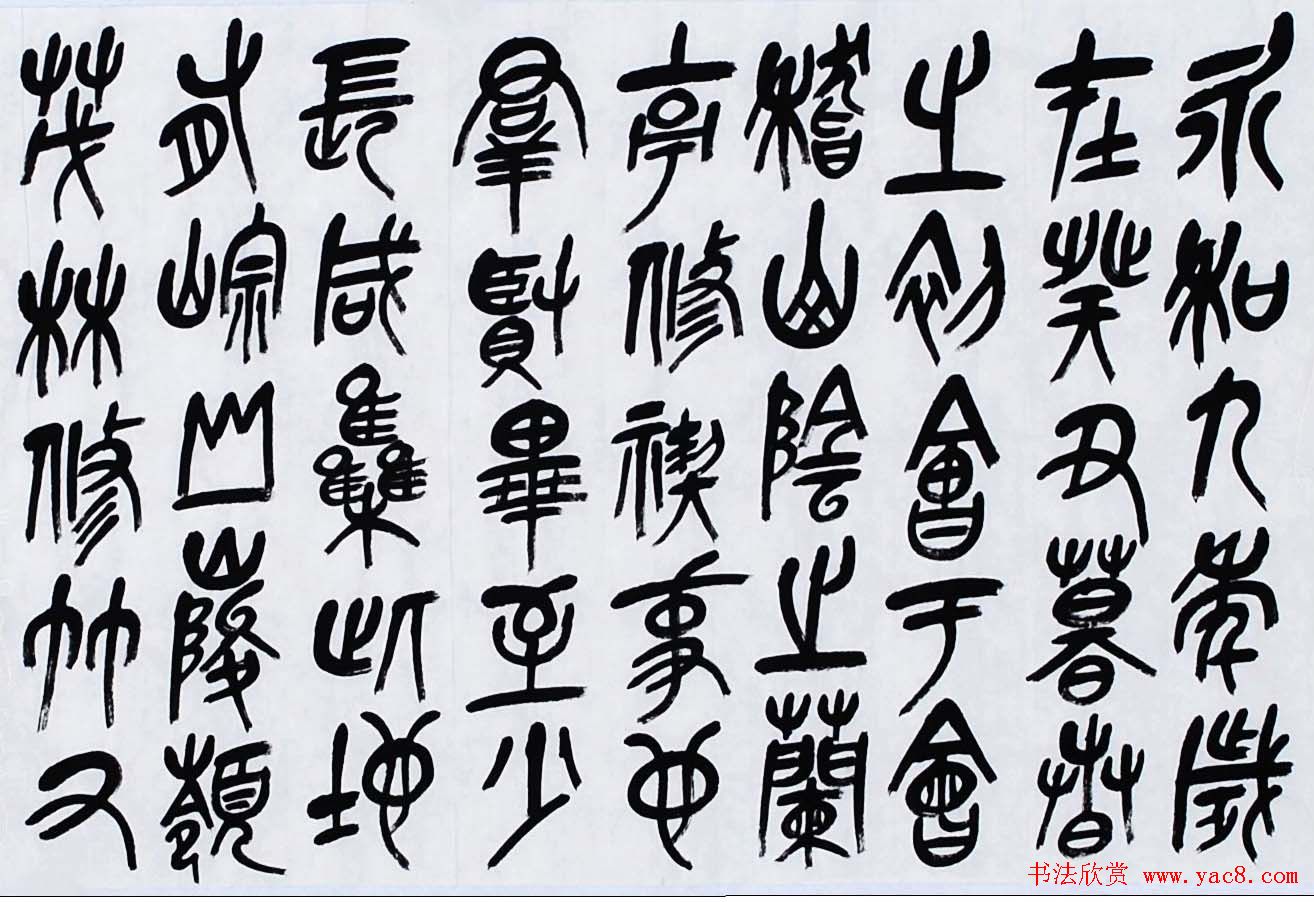 永和九年歲
在癸丑暮春
之初會于會
稽山陰之蘭
亭修禊事也
羣賢畢至少
長咸集此地
有崇山峻嶺
茂林修竹又
书法欣赏 www.yac8.com